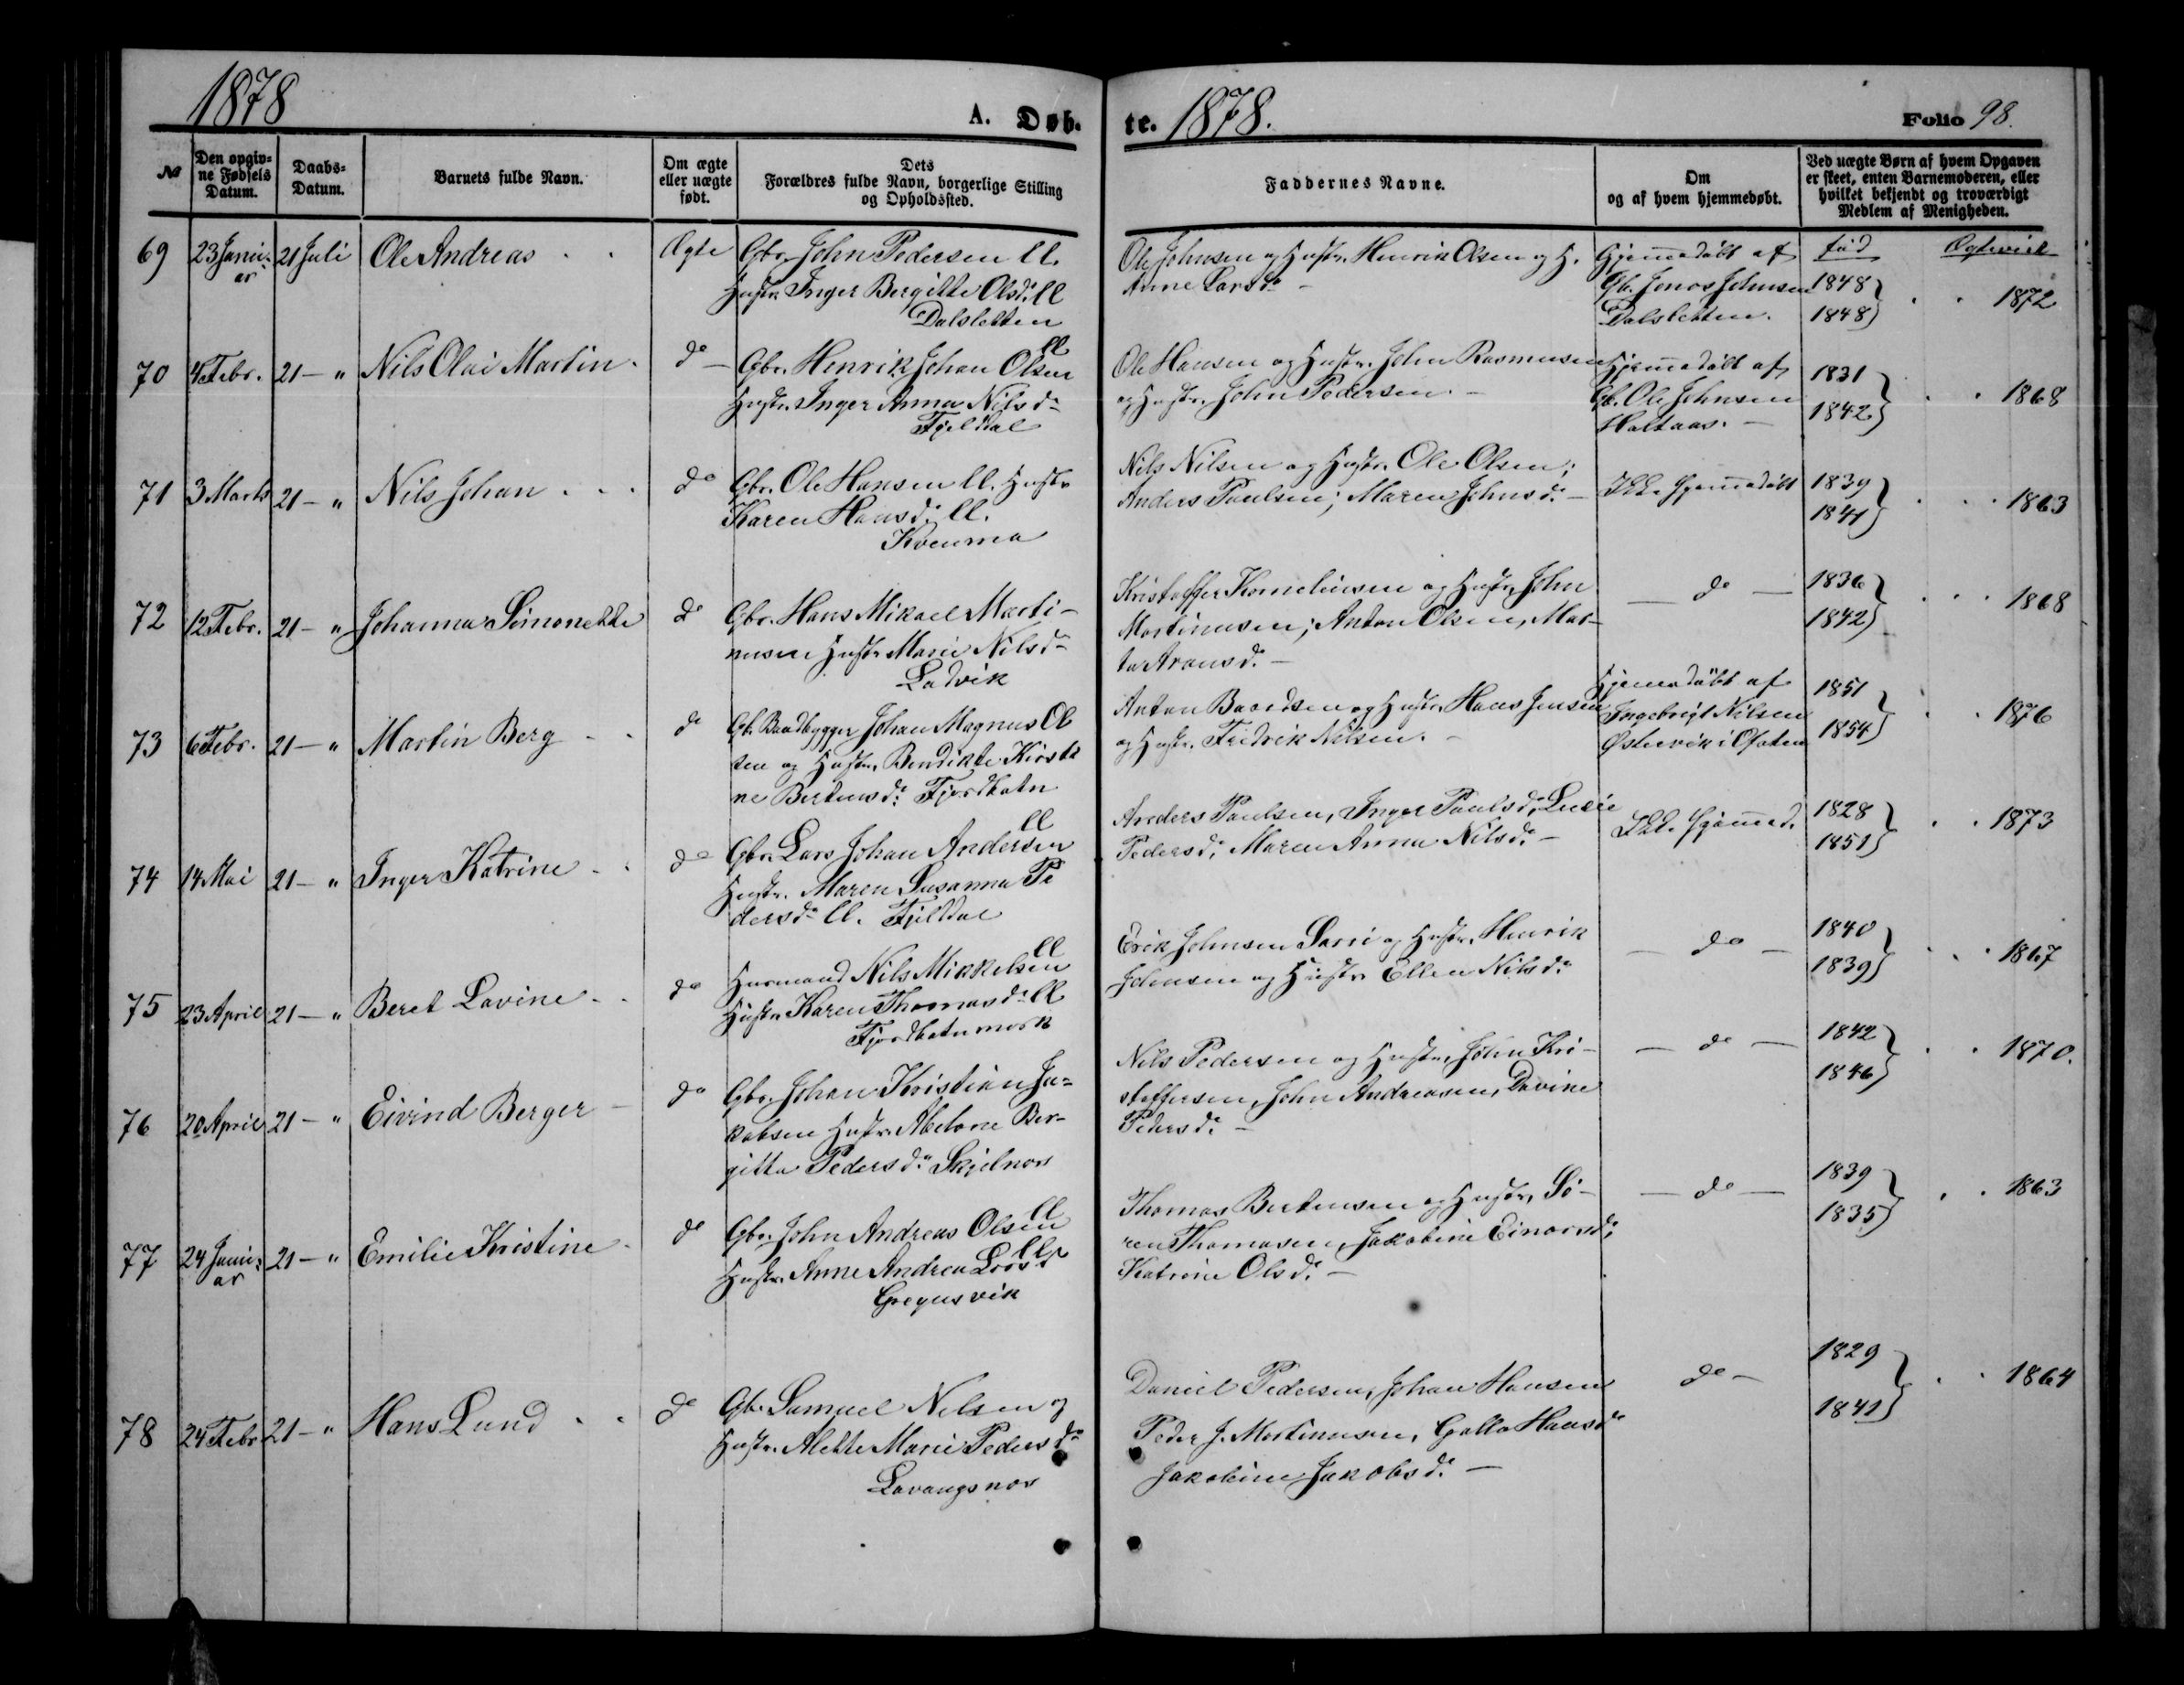 1878
A. Døb-
te. 1878.
Folio 98.
№
Den opgiv-
ne Fødsels
Datum.
Daabs-
Datum.
Barnets fulde Navn.
Om ægte
eller uægte
født.
Dets
Forældres fulde Navn, borgerlige Stilling
og Opholdssted.
Faddernes Navne.
Om
og af hvem hjemmedøbt.
Ved uægte Børn af hvem Opgaven
er skeet, enten Barnemoderen, eller
hvilket bekjendt og troværdigt
Medlem af Menigheden.
69 23 Janu-
ar
21 Juli Ole Andreas Ægte
Gbr. John Pedersen ll.
Hustr. Inger Bergitte Olsd. ll
Dalsletten
Ole Johnsen og Hustr. Henrik Olsen og H.
Anne Larsd. –
Hjemmedøbt af
Gb. Jonas Johnsen
Dalsletten.
fød
1848
1848
1872
70 4 Febr. 21 – " Nils Olai Martin do –
Gbr. Henrik Johan Olsen ll
Hustr. Inger Anna Nilsd.
Fjeldal
Ole Hansen og Hustr. John Rasmusen
og Hustr. John Pedersen. –
Hjemmedøbt af
Gb. Ole Johnsen
Haltaas. –
1831
1842
1868
71 3 Marts 21 – " Nils Johan do
Gbr. Ole Hansen ll. Hustr
Karen Hansd. ll.
Nils Nilsen og Hustr. Ole Olsen;
Anders Paulsen; Maren Johnsd. –
Ikke hjemmedøbt
1839
1841
1863
72 12 Febr. 21 – " Johanna Simonette do
Gbr. Hans Mikael Marti-
nusen Hustr. Marie Nilsd.
Ladvik
Kristoffer Korneliusen og Hustr. John
Martinusen; Anton Olsen, Mar-
ta Aronsd. –
– do –
1836
1842
1868
73 6 Febr. 21 – " Martin Berg do
Gb. Baadbygger Johan Magnus Ol
sen og Hustr. Bendikte Kirsti
ne Bertensd. Fjordbotn
Anton Baardsen og Hustr. Hans Jensen
og Hustr. Fredrik Nilsen. –
Hjemmedøbt af
Ingebrigt Nilsen
Østervik i Ofoten
1851
1854
1876
74 14 Mai 21 – " Inger Katrine do
Gbr. Lars Johan Andersen ll
Hustr. Maren Susanna Pe
dersd. ll. Fjeldal
Anders Paulsen, Inger Paulsd., Lucie
Pedersd., Maren Anna Nilsd. –
Ikke hjemmed.
1828
1851
1873
75 23 April 21 – " Beret Lavine do
Husmand Nils Mikkelsen ll
Hustr. Karen Thomasd. ll
Fjordbotnmark
Erik Johnsen Sarri og Hustr. Henrik
Johnsen og Hustr. Ellen Nilsd.
– do –
1840
1839
1867
76 20 April 21 – " Eivind Berger do
Gbr. Johan Kristian Ja-
kobsen Hustr. Abelone Ber-
gitta Pedersd. Skjelnes
Nils Pedersen og Hustr., John Kri-
stoffersen, John Andreasen, Davine
Pedersd. –
– do –
1842
1846
1870.
77 24 Janu-
ar
21 – " Emilie Kristine do
Gbr. John Andreas Olsen ll
Hustr. Anne Andrea Larsd ll
Gregusvik
Thomas Bertensen og Hustr. Sø-
ren Thomasen, Jakobine Einarsd.
Katrine Olsd. –
– do –
1839
1835
1863
78 24 Febr 21 – " Hans Lund do
Gbr. Samuel Nilsen og
Hustr. Alette Marie Pedersd.
Lavangsnes
Daniel Pedersen, Johan Hansen
Peder J. Martinusen, Hansd.
Jakobine Jakobsd. –
do –
1829
1841
1864